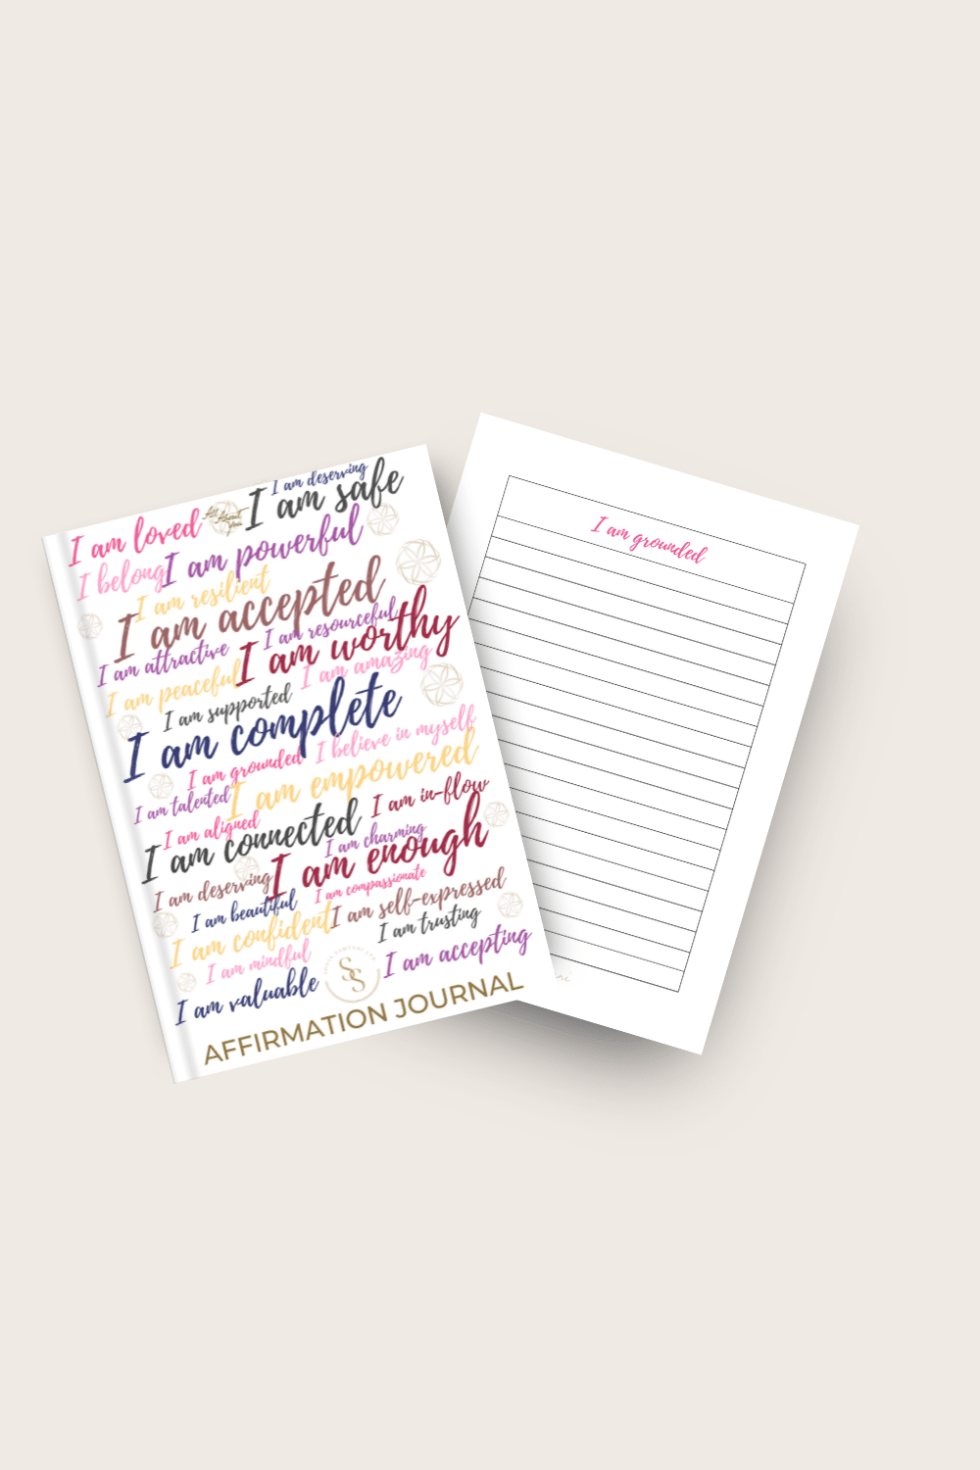 I am deserving
I am loved
I am safe
I belong
I am powerful
I am resilient
I am accepted
I am resourceful
I am attractive
I am worthy
I am peaceful
I am amazing
I am supported
I am complete
I believe in myself
I am grounded
I am empowered
I am talented
I am in-flow
I am aligned
I am connected
I am charming
I am enough
I am deserving
I am compassionate
I am beautiful
I am self-expressed
I am confident
I am trusting
I am mindful
I am accepting
I am valuable
SS
AFFIRMATION JOURNAL
I am grounded